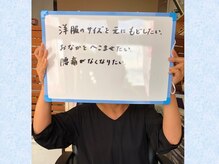 洋服のサイズを元にもどしたい。
おなかをへこませたい
腰痛がなくなりたい